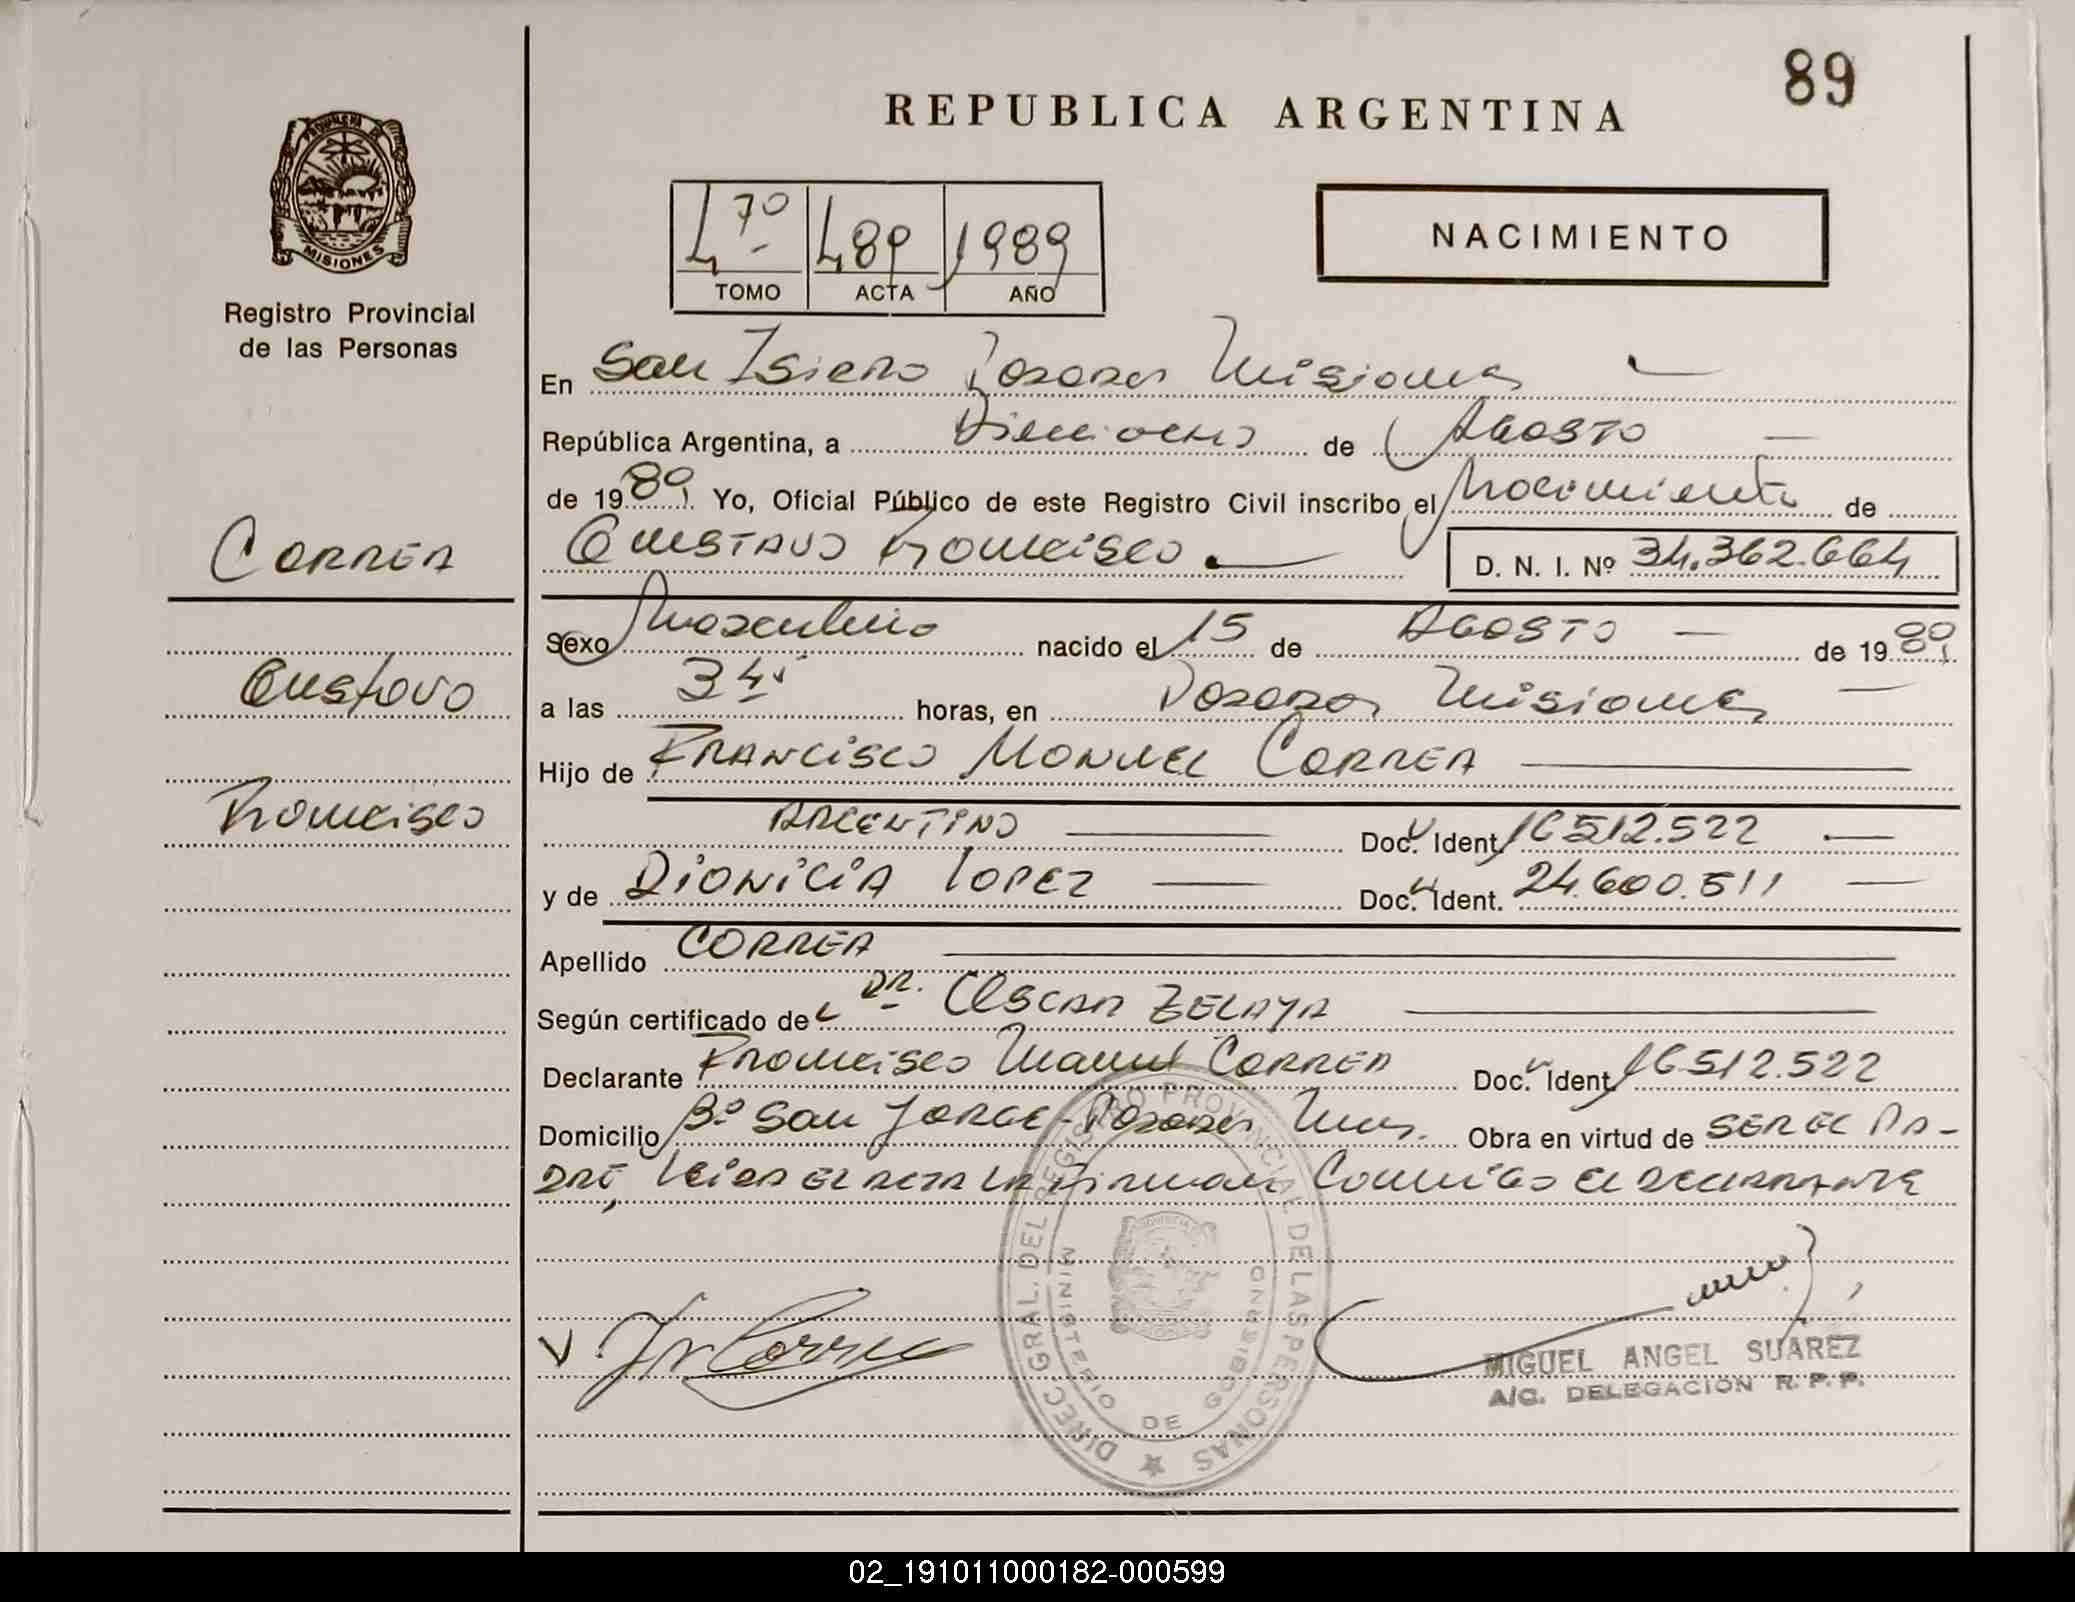 89
REPUBLICA ARGENTINA
NACIMIENTO
7º 489 1989
TOMO ACTA AÑO
MISIONES
Registro Provincial
de las Personas
En San Isidro Posadas Misiones
República Argentina, a Dieciocho de Agosto
de 1989. Yo, Oficial Público de este Registro Civil inscribo el Nacimiento de
CORREA
Gustavo Francisco
D. N. I. Nº 34.362.664
Sexo Masculino nacido el 15 de AGOSTO de 1989.
Gustavo
a las 3 45 horas, en Posadas Misiones
Hijo de FRANCISCO MANUEL CORREA
Francisco
ARGENTINO Doc. Ident. 16512.522
y de DIONICIA LOPEZ Doc. Ident. 24.600.511
Apellido CORREA
Según certificado de DR. OSCAR ZELAYA
Declarante Francisco Manuel CORREA Doc. Ident. 16512.522
Domicilio Bº San JORGE - Posadas Mnes. Obra en virtud de SER EL PA-
DRE, Leida EL ACTA LA Firman Conmigo El DECLARANTE
DIREC. GRAL. DEL REGISTRO PROVINCIAL DE LAS PERSONAS
MINISTERIO DE GOBIERNO
V. Fr Correa
MIGUEL ANGEL SUAREZ
A/C. DELEGACION R. P. P.
02_191011000182-000599